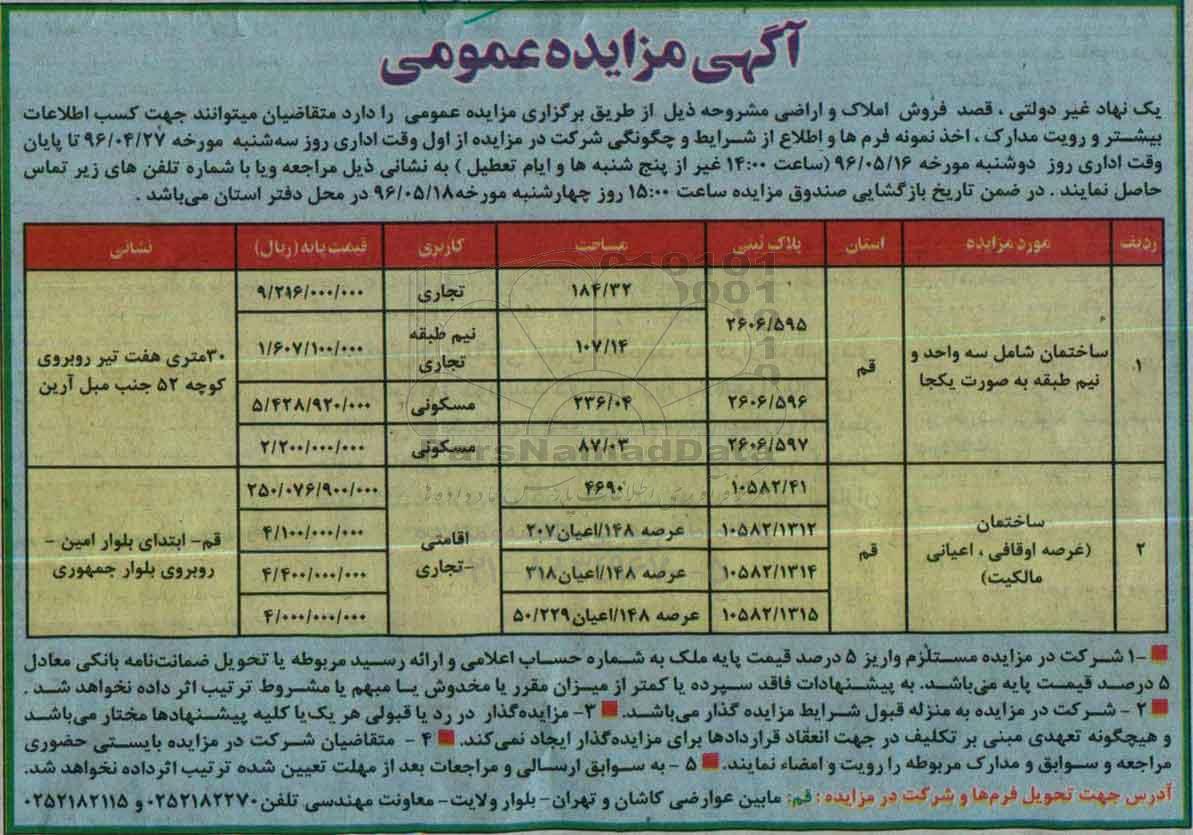 آگهی مزایده عمومی
یک نهاد غیر دولتی ، قصد فروش املاک و اراضی مشروحه ذیل از طریق برگزاری مزایده عمومی را دارد متقاضیان میتوانند جهت کسب اطلاعات
بیشتر و رویت مدارک ، اخذ نمونه فرم ها و اطلاع از شرایط و چگونگی شرکت در مزایده از اول وقت اداری روز سه‌شنبه مورخه ۹۶/۰۴/۲۷ تا پایان
وقت اداری روز دوشنبه مورخه ۹۶/۰۵/۱۶ (ساعت ۱۴:۰۰ غیر از پنج شنبه ها و ایام تعطیل ) به نشانی ذیل مراجعه ویا با شماره تلفن های زیر تماس
حاصل نمایند . در ضمن تاریخ بازگشایی صندوق مزایده ساعت ۱۵:۰۰ روز چهارشنبه مورخه ۹۶/۰۵/۱۸ در محل دفتر استان می‌باشد .
ردیف مورد مزایده استان پلاک ثبتی مساحت کاربری قیمت پایه (ریال) نشانی
۱ ساختمان شامل سه واحد و نیم طبقه به صورت یکجا قم ۲۶۰۶/۵۹۵ ۱۸۴/۳۲ تجاری ۹/۲۱۶/۰۰۰/۰۰۰ ۳۰متری هفت تیر روبروی کوچه ۵۲ جنب مبل آرین
۱۰۷/۱۴ نیم طبقه تجاری ۱/۶۰۷/۱۰۰/۰۰۰
۲۶۰۶/۵۹۶ ۲۳۶/۰۴ مسکونی ۵/۴۲۸/۹۲۰/۰۰۰
۲۶۰۶/۵۹۷ ۸۷/۰۳ مسکونی ۲/۲۰۰/۰۰۰/۰۰۰
۲ ساختمان (عرصه اوقافی ، اعیانی مالکیت) قم ۱۰۵۸۲/۴۱ ۴۶۹۰ اقامتی -تجاری ۲۵۰/۰۷۶/۹۰۰/۰۰۰ قم- ابتدای بلوار امین - روبروی بلوار جمهوری
۱۰۵۸۲/۱۳۱۲ عرصه ۱۴۸/اعیان۲۰۷ ۴/۱۰۰/۰۰۰/۰۰۰
۱۰۵۸۲/۱۳۱۴ عرصه ۱۴۸/اعیان۳۱۸ ۴/۴۰۰/۰۰۰/۰۰۰
۱۰۵۸۲/۱۳۱۵ عرصه ۱۴۸/اعیان۵۰/۲۲۹ ۴/۰۰۰/۰۰۰/۰۰۰
ParsNamadData
۱- شرکت در مزایده مستلزم واریز ۵ درصد قیمت پایه ملک به شماره حساب اعلامی و ارائه رسید مربوطه یا تحویل ضمانت‌نامه بانکی معادل
۵ درصد قیمت پایه می‌باشد. به پیشنهادات فاقد سپرده یا کمتر از میزان مقرر یا مخدوش یا مبهم یا مشروط ترتیب اثر داده نخواهد شد .
۲ - شرکت در مزایده به منزله قبول شرایط مزایده گذار می‌باشد. ۳- مزایده‌گذار در رد یا قبولی هر یک‌یا کلیه پیشنهادها مختار می‌باشد
و هیچگونه تعهدی مبنی بر تکلیف در جهت انعقاد قراردادها برای مزایده‌گذار ایجاد نمی‌کند. ۴ - متقاضیان شرکت در مزایده بایستی حضوری
مراجعه و سوابق و مدارک مربوطه را رویت و امضاء نمایند. ۵ - به سوابق ارسالی و مراجعات بعد از مهلت تعیین شده ترتیب اثرداده نخواهد شد.
آدرس جهت تحویل فرم‌ها و شرکت در مزایده : قم: مابین عوارضی کاشان و تهران- بلوار ولایت- معاونت مهندسی تلفن ۰۲۵۲۱۸۲۲۷۰ و ۰۲۵۲۱۸۲۱۱۵